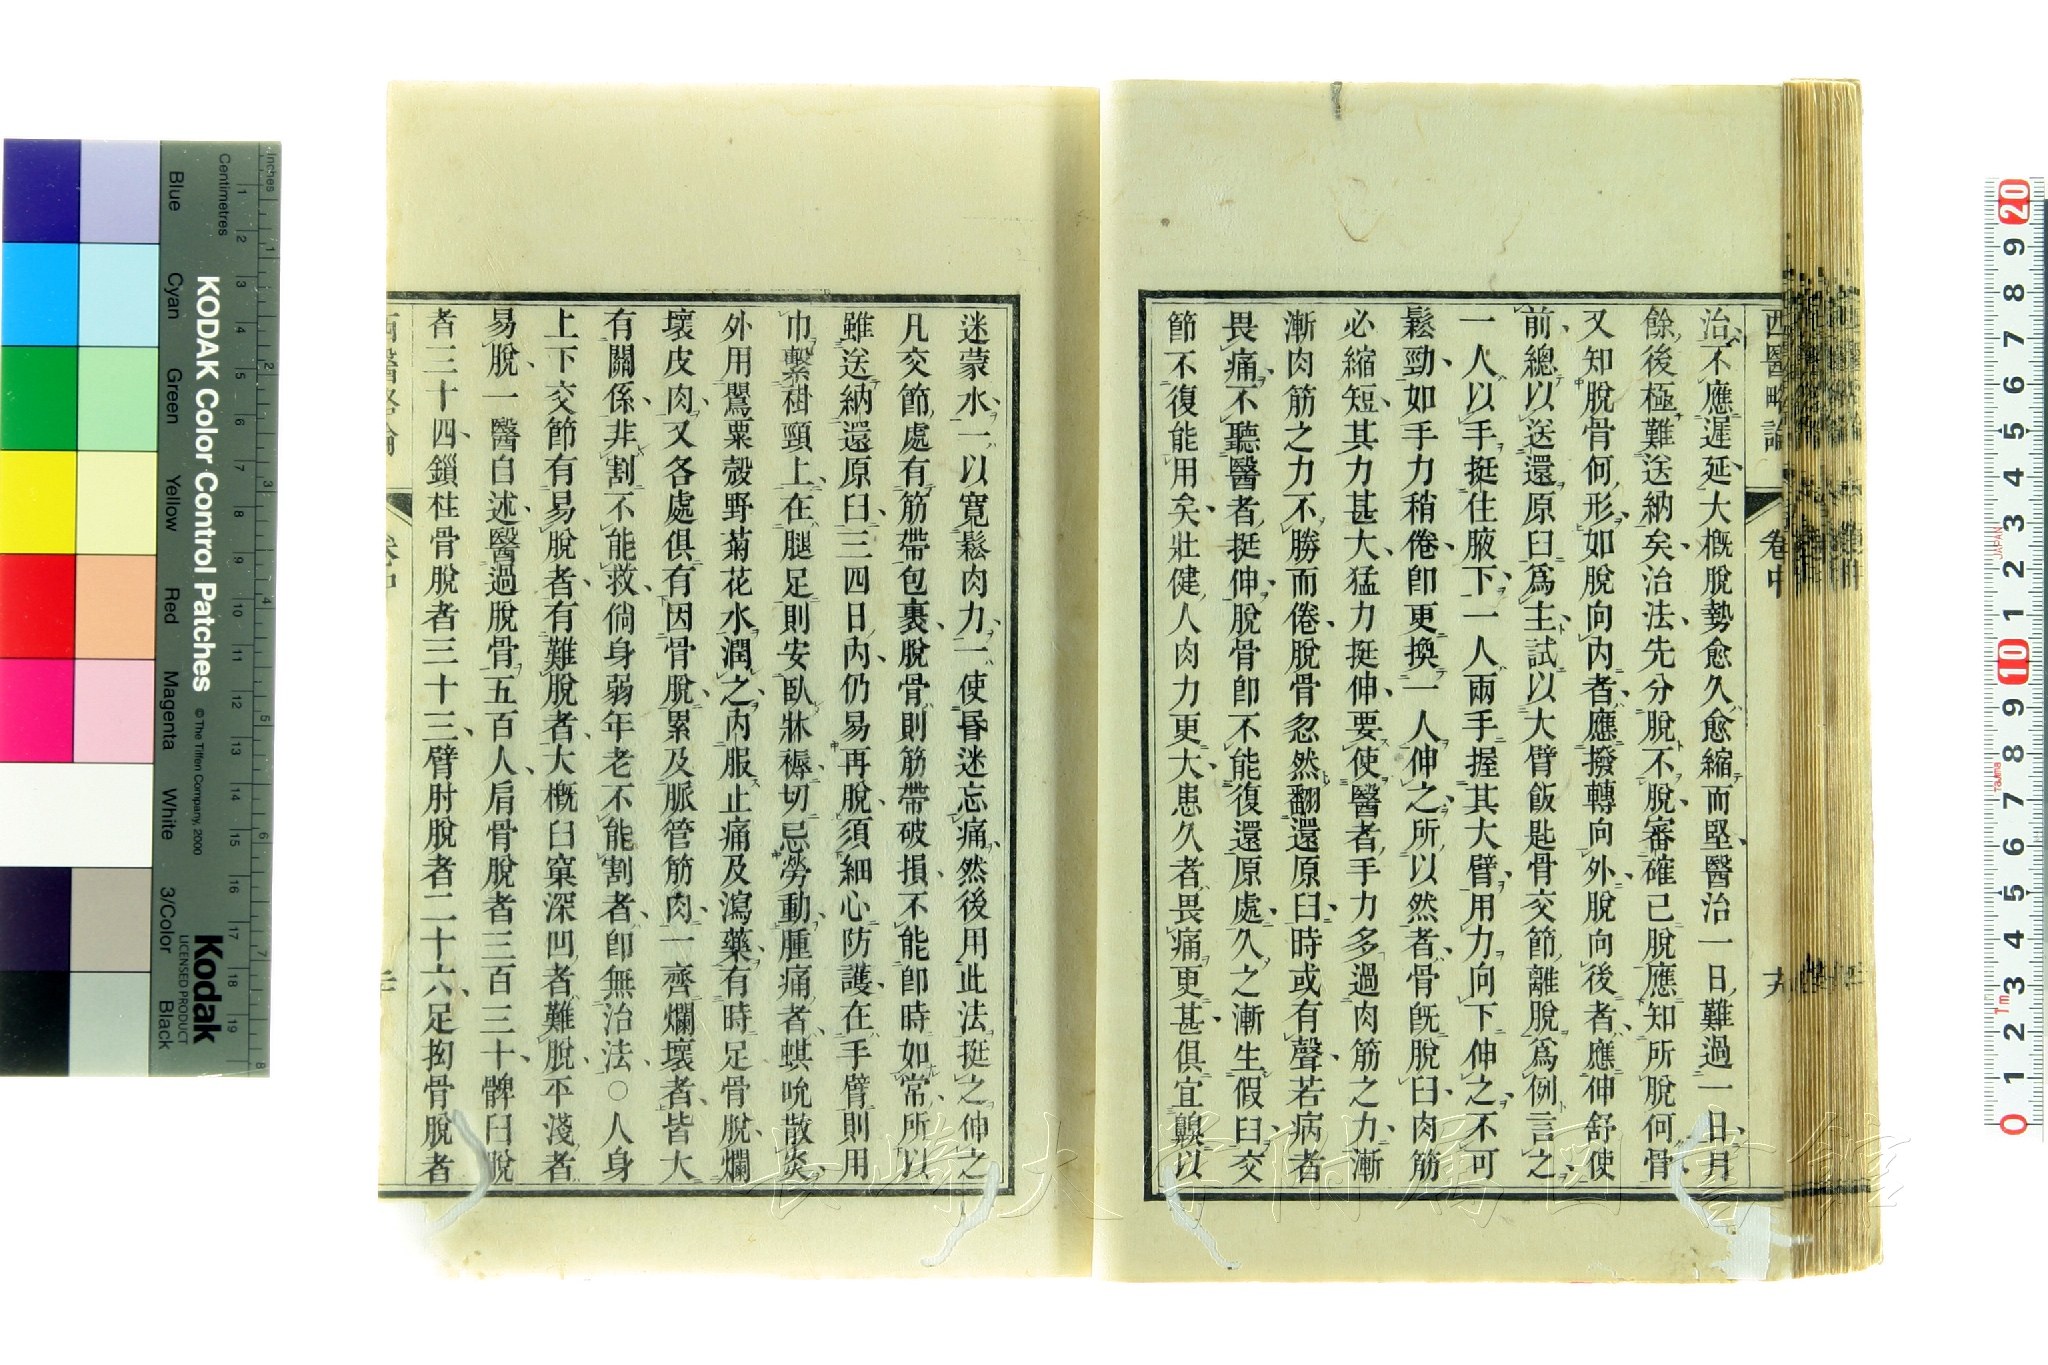 西醫略論
卷中
十九
治不應遲延大概脫勢愈久愈縮而堅醫治一日難過一日月
餘後極難送納矣治法先分脫不脫審確已脫應知所脫何骨
又知脫骨何形如脫向内者應撥轉向外脫向後者應伸舒使
前總以送還原臼爲主試以大臂飯匙骨交節離脫爲例言之
一人以手挺住腋下一人兩手握其大臂用力向下伸之不可
鬆勁如手力稍倦卽更換一人伸之所以然者骨旣脫臼肉筋
必縮短其力甚大猛力挺伸要使醫者手力多過肉筋之力漸
漸肉筋之力不勝而倦脫骨忽然翻還原臼時或有聲若病者
畏痛不聽醫者挺伸脫骨卽不能復還原處久之漸生假臼交
節不復能用矣壯健人肉力更大患久者畏痛更甚俱宜齅以
迷蒙水一以寬鬆肉力一使昏迷忘痛然後用此法挺之伸之
凡交節處有筋帶包裹脫骨則筋帶破損不能卽時如常所以
雖送納還原臼三四日内仍易再脫須細心防護在手臂則用
巾繫褂頸上在腿足則安臥牀褥切忌勞動腫痛者蜞吮散炎
外用罌粟殼野菊花水潤之内服止痛及瀉藥有時足骨脫爛
壞皮肉又各處俱有因骨脫累及脈管筋肉一齊爛壞者皆大
有關係非割不能救倘身弱年老不能割者卽無治法○人身
上下交節有易脫者有難脫者大概臼窠深凹者難脫平淺者
易脫一醫自述醫過脫骨五百人肩骨脫者三百三十髀臼脫
者三十四鎖柱骨脫者三十三臂肘脫者二十六足拗骨脫者
西醫略論
卷中